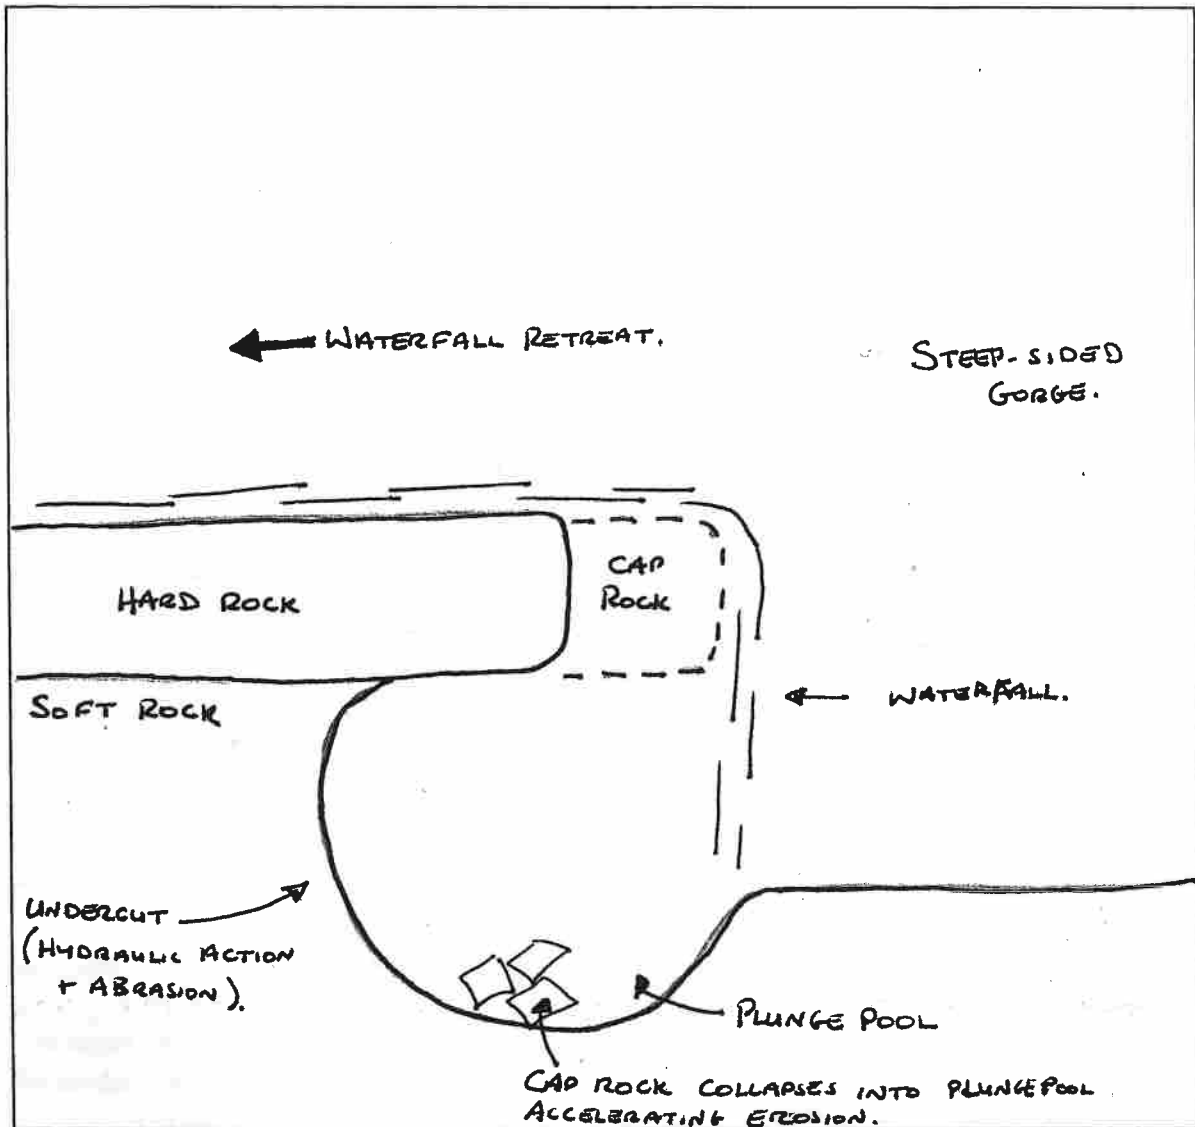 WATERFALL RETREAT.
STEEP-SIDED
GORGE.
CAP
ROCK
HARD ROCK
WATERFALL.
SOFT ROCK
UNDERCUT
(HYDRAULIC ACTION
+ ABRASION).
PLUNGE POOL
CAP ROCK COLLAPSES INTO PLUNGEPOOL
ACCELERATING EROSION.